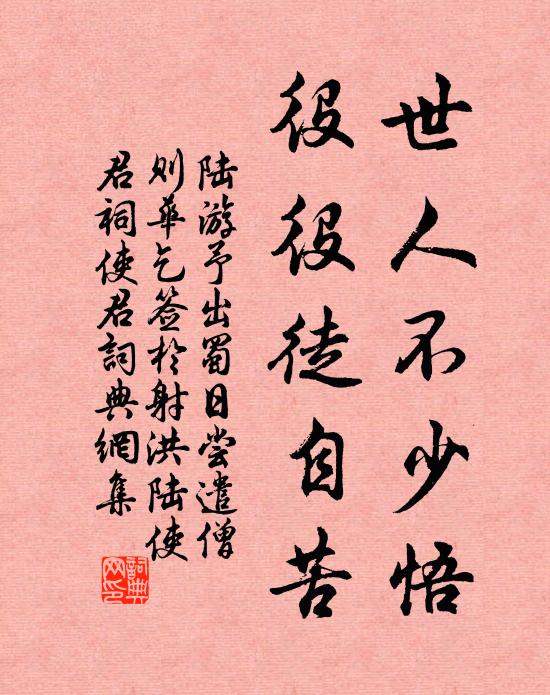 世人不少悟
役役徒自苦
陆游予出蜀日尝遣僧
则华乞签於射洪陆使
君祠使君詞典網集
詞典
网印